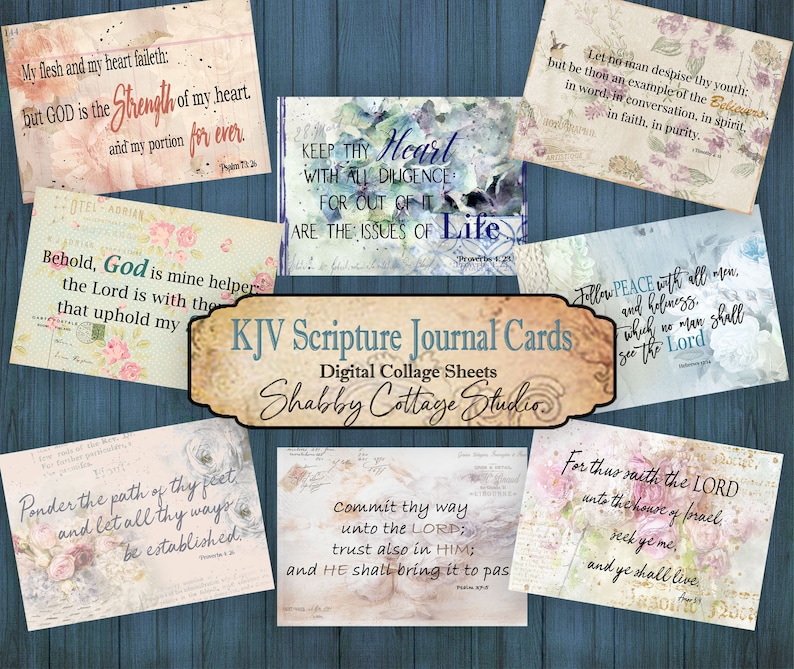 144
My flesh and my heart faileth:
but GOD is the Strength of my heart,
and my portion for ever.
Psalm 73:26
KEEP THY Heart
WITH ALL DILIGENCE:
FOR OUT OF IT
ARE THE ISSUES OF Life
Proverbs 4, 23
Let no man despise thy youth;
but be thou an example of the Believers,
in word, in conversation, in spirit,
in faith, in purity.
ARTISTIQUE
OTEL-ADRIAN
Behold, God is mine helper:
the Lord is with the
that uphold my
CARTE POSTALE
Follow PEACE with all men,
and holiness,
which no man shall
see the Lord
Hebrews 12:14
KJV Scripture Journal Cards
Digital Collage Sheets
Shabby Cottage Studio.
Ponder the path of thy feet,
and let all thy ways
be established.
Proverbs 4: 26
LIBOURNE
Commit thy way
unto the LORD;
trust also in HIM;
and HE shall bring it to pas
Psalm 37:5
For thus saith the LORD
unto the house of Israel,
seek ye me,
and ye shall live.